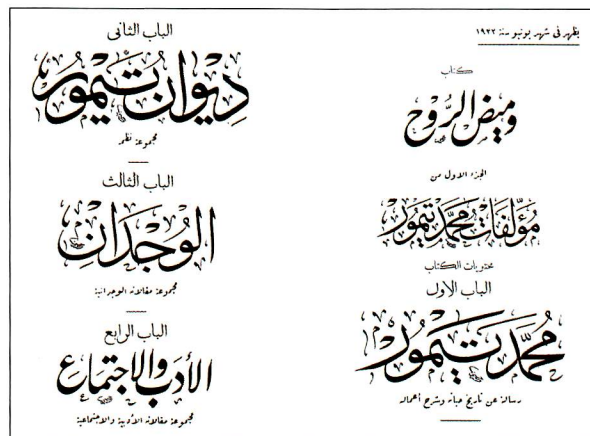 يظهر فى شهر يونيو سنة ١٩٢٢
كتاب
وميض الروح
الجزء الاول من
مؤلفات محمد تيمور
محتويات الكتاب
الباب الاول
محمد تيمور
رسالة عن تاريخ حياته وشرح أعماله
الباب الثانى
ديوان تيمور
مجموعة نظمه
الباب الثالث
الوجدان
مجموعة مقالاته الوجدانية
الباب الرابع
الأدب والاجتماع
مجموعة مقالاته الأدبية والاجتماعية